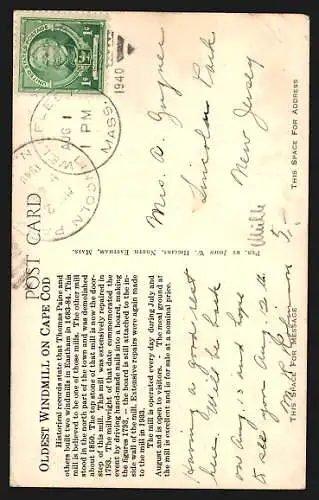 POST CARD
OLDEST WINDMILL ON CAPE COD
Historical records state that Thomas Paine and
others built two windmills in Eastham in 1683-84. This
mill is believed to be one of those mills. The other mill
stood in the north part of the town and was demolished
about 1850. The top stone of that mill is now the door-
step of this mill. This mill was extensively repaired in
1793. The millwright of that date commemorated the
event by driving hand-made nails into a board, making
the figures 1793, - the board is still attached to the in-
side wall of the mill. Extensive repairs were again made
to the mill in 1933.
The mill is operated every day during July and
August and is open to visitors. - The meal ground at
the mill is excellent and is for sale at a nominal price.
here. Expect to be back
Aug. 5 and hope
to see you Aug. 12.
THIS SPACE FOR MESSAGE
PUB. BY JOHN W. HIGGINS, NORTH EASTHAM, MASS.
UNITED STATES POSTAGE
1¢ 1¢
WELLFLEET
AUG 1
1 PM
1940
MASS.
LINCOLN
Mrs. A. Gugner
Lincoln Park
New Jersey
THIS SPACE FOR ADDRESS